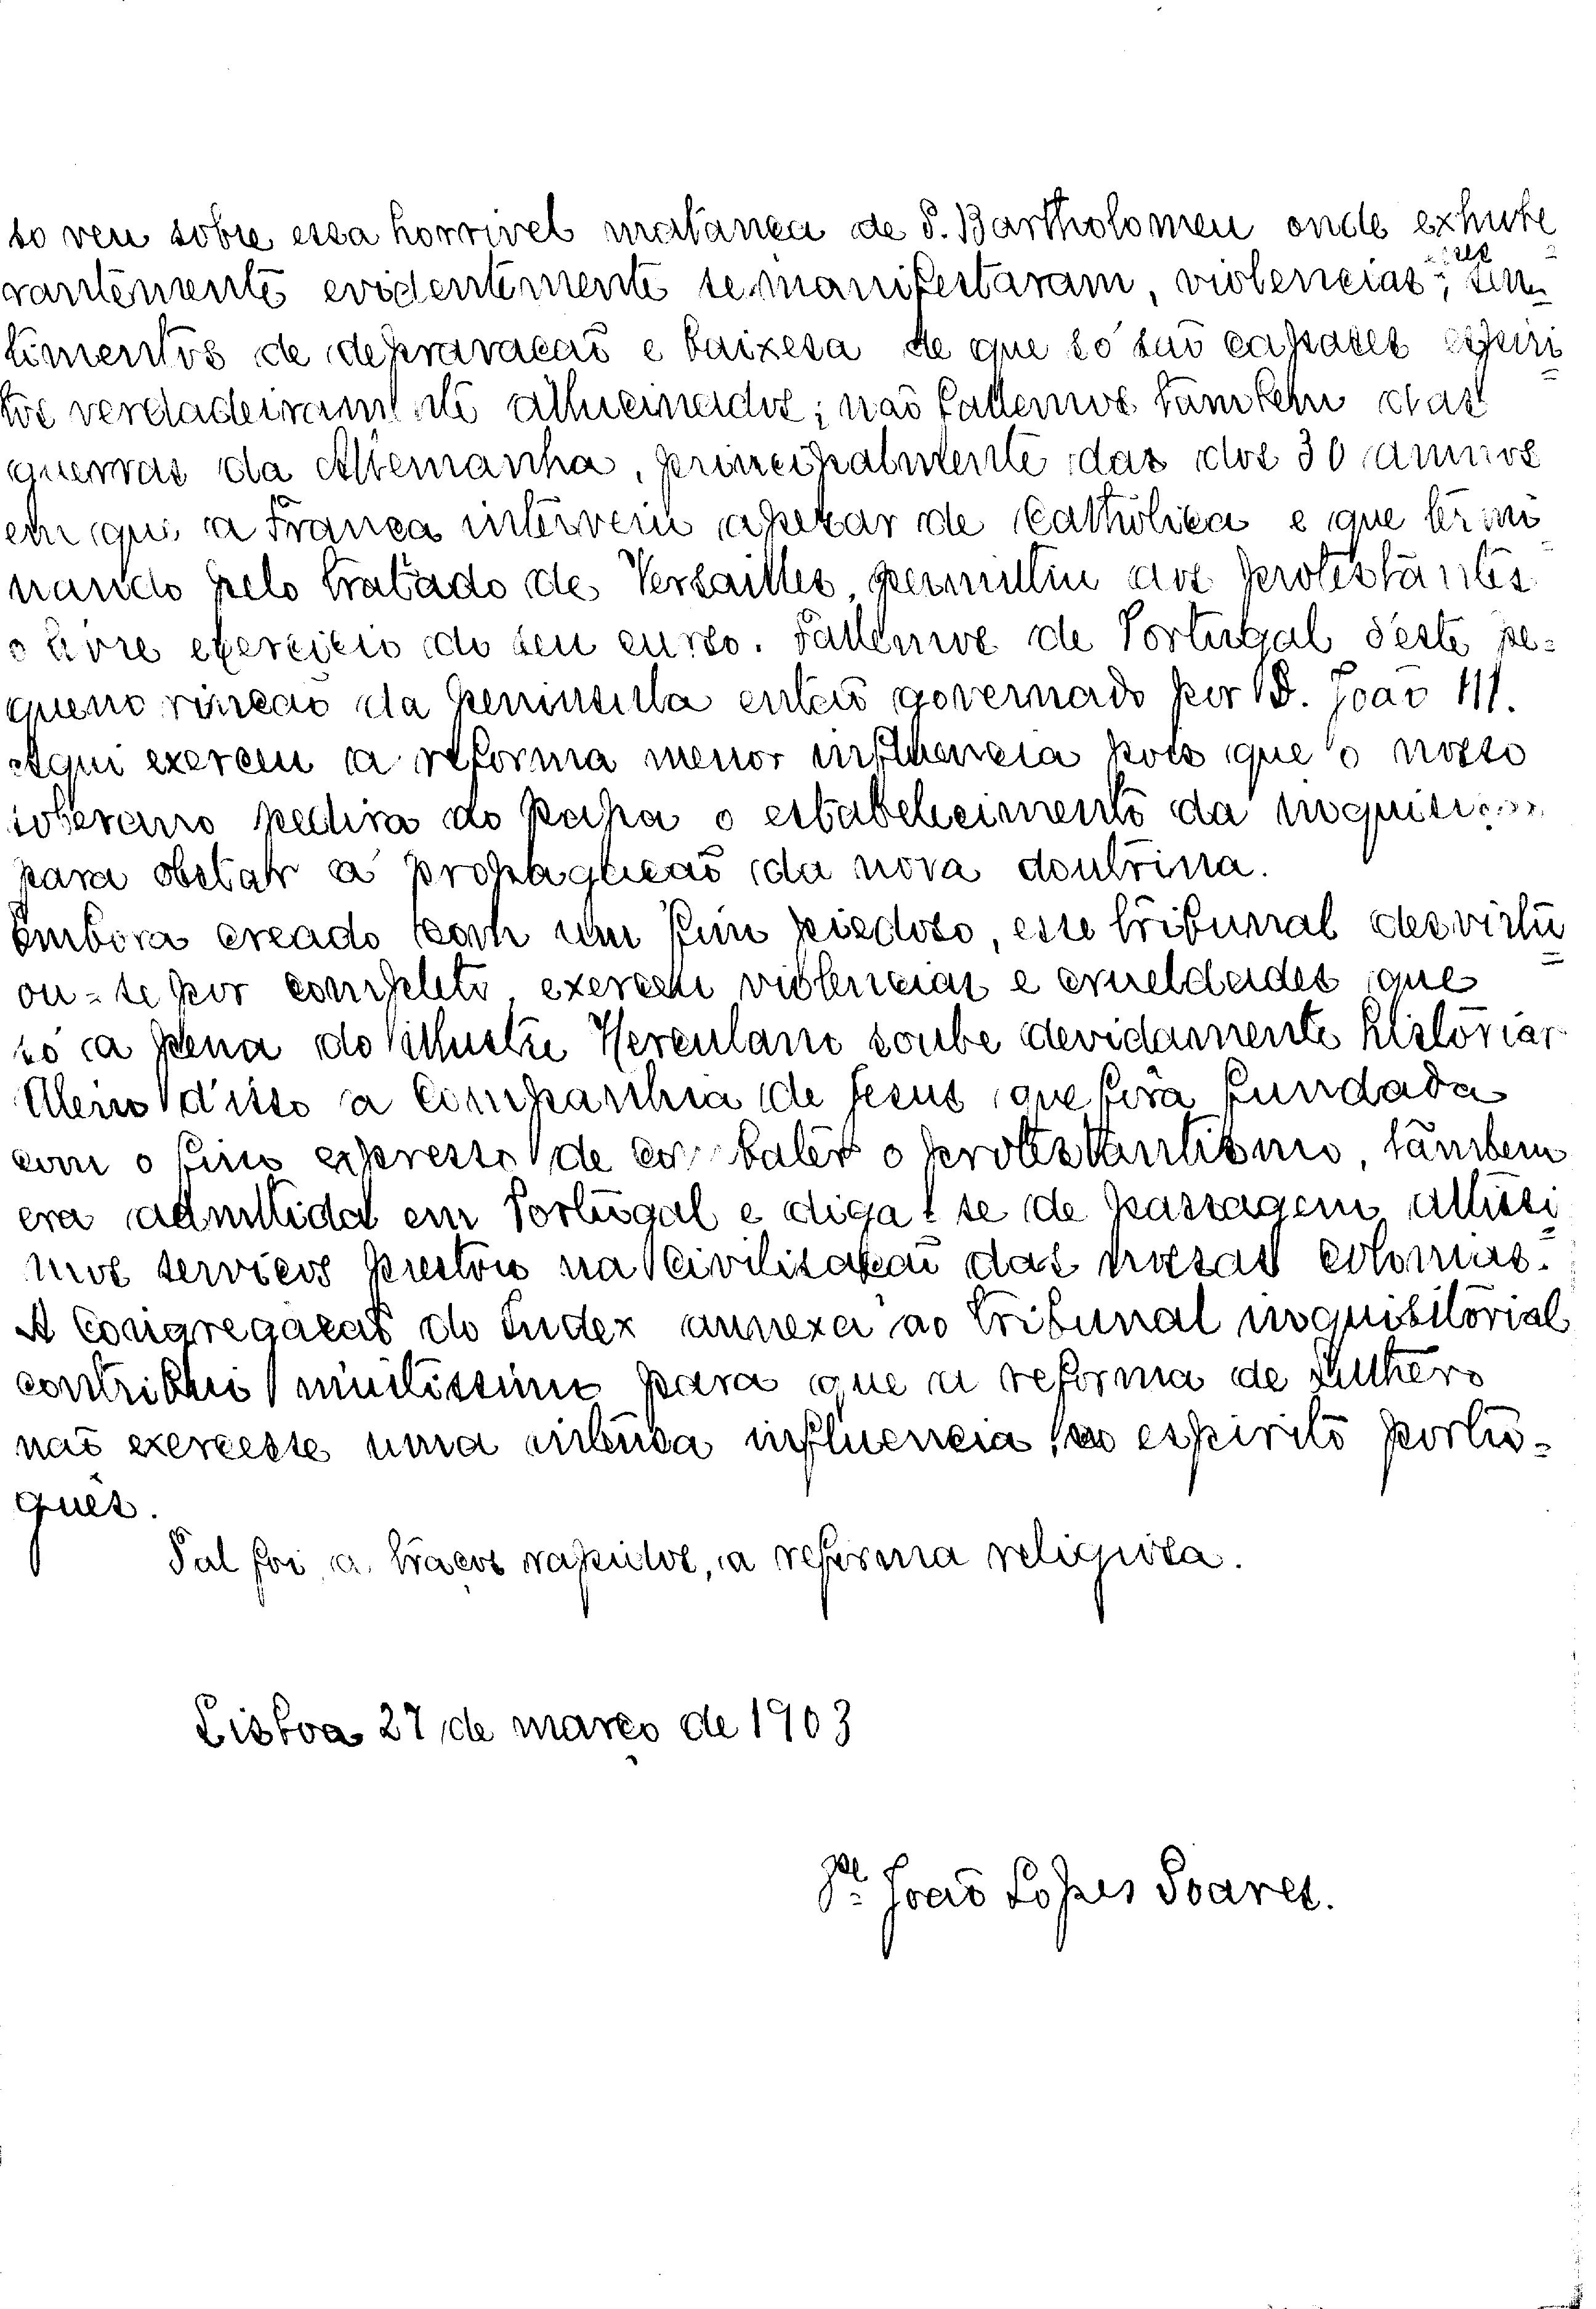 so veu sobre essa horrivel matança de S. Bartholomeu onde exhube
rantemente evidentemente se manifestaram, violencias, sen
timentos de depravação e baixesa de que só são capazes espiri
tos verdadeiramente allucinados; não fallemos tambem das
guerras da Allemanha, principalmente das dos 30 annos
em que a França interveiu apezar de catholica e que termi
nando pelo tratado de Versailles, permittiu aos protestantes
o livre exercicio do seu curso. Fallemos de Portugal d'este pe=
queno rincão da peninsula então governado por D. João III.
Aqui exerceu a reforma menor influencia pois que o nosso
soberano pedira ao papa o estabelecimento da inquisição
para obstar á propagação da nova doutrina.
Embora creado com um fim piedoso, esse tribunal desvirtu
ou=se por completo, exerceu violencias e crueldades que
só a pena do illustre Herculano soube devidamente historiar
Alem d'isso a Companhia de Jesus que fôra fundada
com o fim expresso de combater o protestantismo, tambem
era admittida em Portugal e diga-se de passagem altissi
mos serviços prestou na civilisação das nossas colonias.
A Congregação do Index annexa ao tribunal inquisitorial
contribuiu muitissimo para que a reforma de Luthero
não exercesse uma intensa influencia no espirito portu=
guês.
Tal foi, a traços rapidos, a reforma religiosa.
Lisboa 27 de março de 1903
Pe. João Lopes Soares.